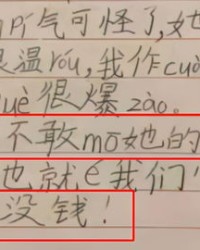 pí气可怪了,她
温róu,我作cuò
què很爆zào。
不敢mō她的
也就é我们"
没钱!